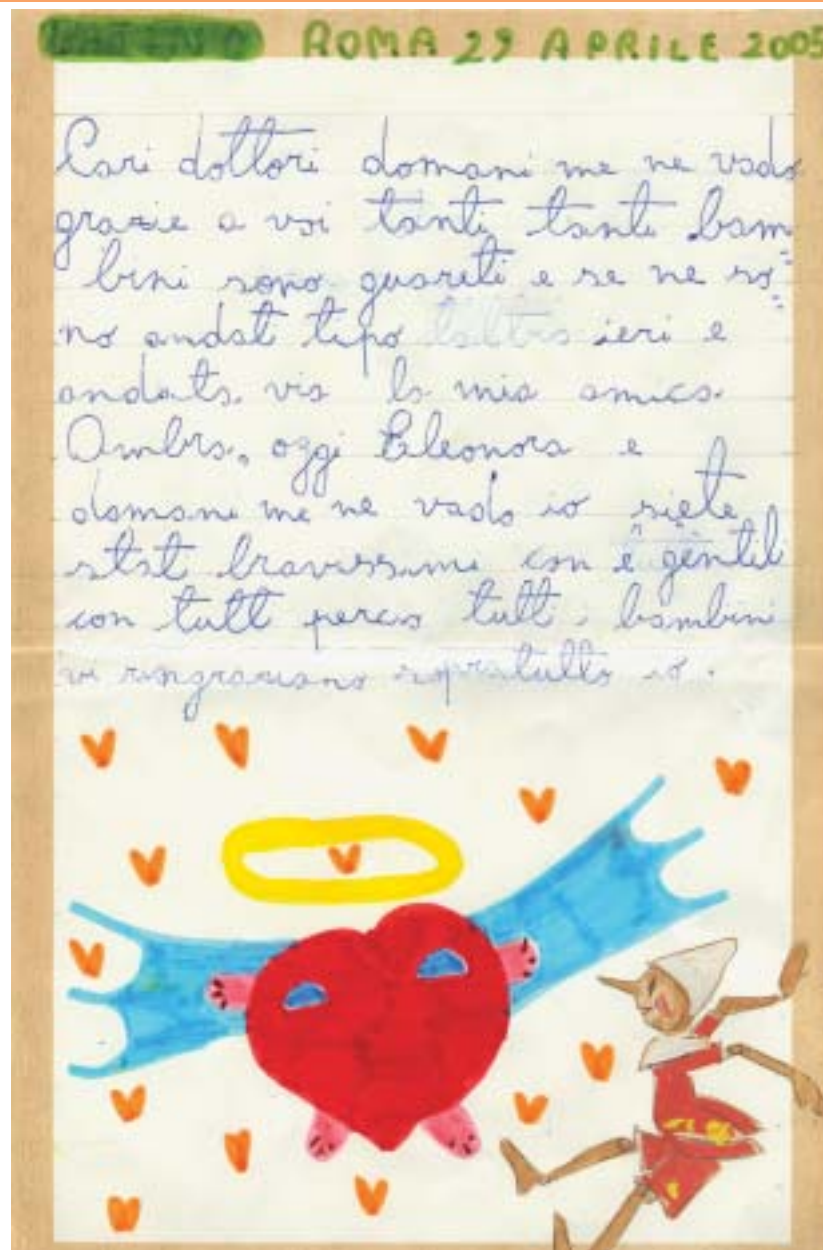 ROMA 29 APRILE 2005
Cari dottori domani me ne vado
grazie a voi tanti, tanti bam
bini sono guariti e se ne so=
no andat tipo l'altro ieri e
andata via la mia amica
Ambra, oggi Eleonora e
domani me ne vado io siete
stat bravissimi con e gentil
con tutt percio tutti i bambini
vi ringraziano sopratutto io.